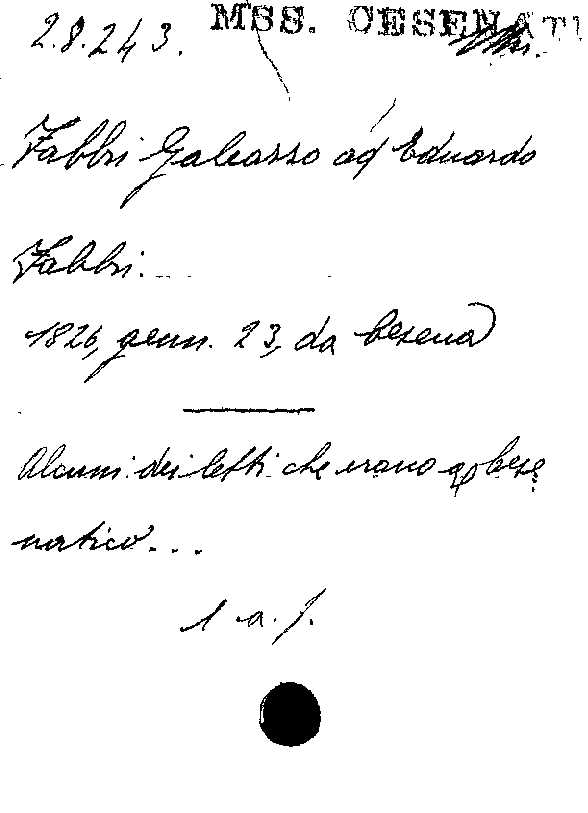 MSS. CESENATI
2.8.243.
Fabbri Galeazzo ad Eduardo
Fabbri.
1826, genn. 23, da Cesena
Alcuni dei letti che erano a Cese
natico...
1 a. f.